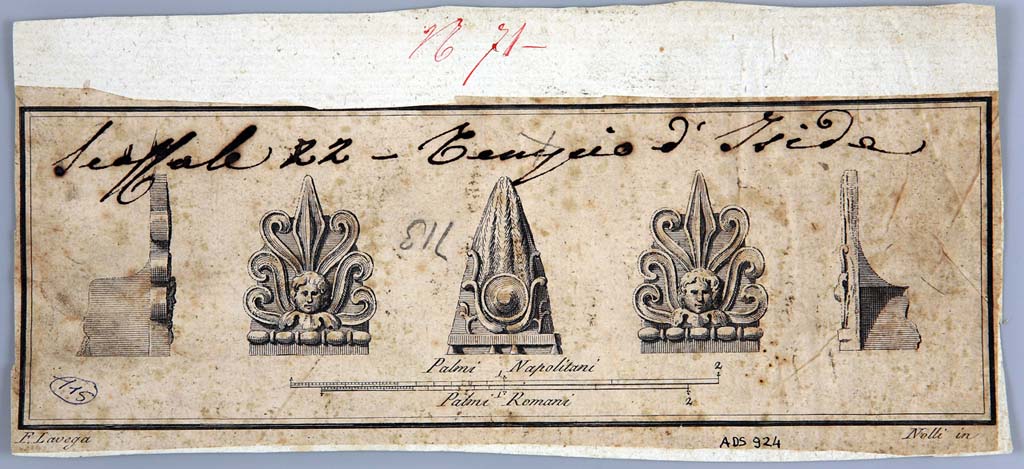 N 71-
Scaffale 22 - Tempio d'Iside
713
Palmi Napolitani
1 2
Palmi Romani
1 2
115
F. Lavega
ADS 924
Nolli in